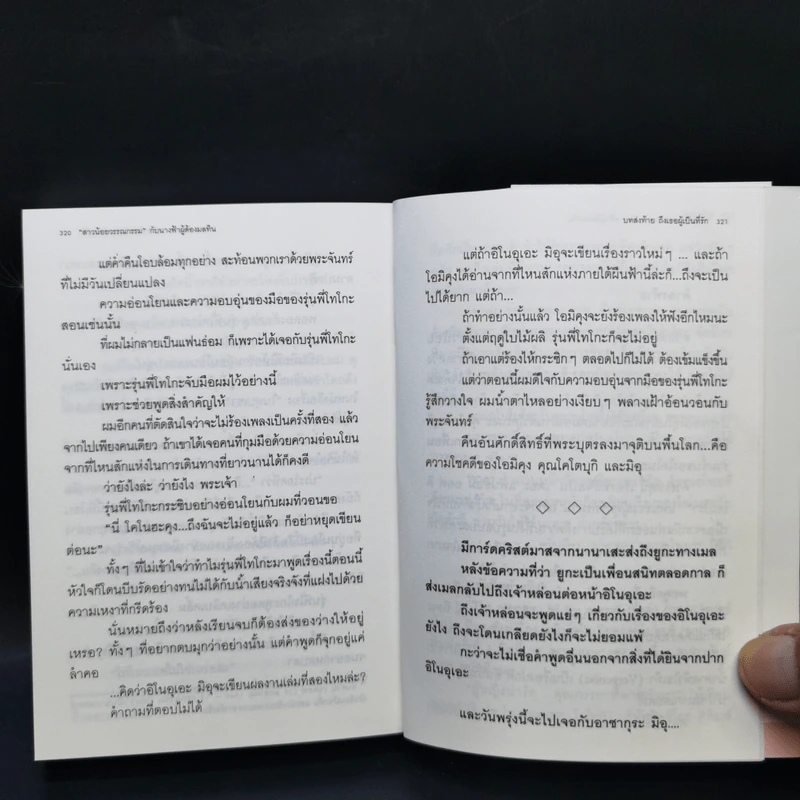 320 "สาวน้อยวรรณกรรม" กับนางฟ้าผู้ต้องมลทิน
แต่ค่ำคืนโอบล้อมทุกอย่าง สะท้อนพวกเราด้วยพระจันทร์
ที่ไม่มีวันเปลี่ยนแปลง
ความอ่อนโยนและความอบอุ่นของมือของรุ่นพี่โทโกะ
สอนเช่นนั้น
ที่ผมไม่กลายเป็นแฟนธ่อม ก็เพราะได้เจอกับรุ่นพี่โทโกะ
นั่นเอง
เพราะรุ่นพี่โทโกะจับมือผมไว้อย่างนี้
เพราะช่วยพูดสิ่งสำคัญให้
ผมอีกคนที่ตัดสินใจว่าจะไม่ร้องเพลงเป็นครั้งที่สอง แล้ว
จากไปเพียงคนเดียว ถ้าเขาได้เจอคนที่กุมมือด้วยความอ่อนโยน
จากที่ไหนสักแห่งในการเดินทางที่ยาวนานได้ก็คงดี
ว่ายังไงล่ะ ว่ายังไง พระเจ้า
รุ่นพี่โทโกะกระซิบอย่างอ่อนโยนกับผมที่วอนขอ
"นี่ โคโนฮะคุง...ถึงฉันจะไม่อยู่แล้ว ก็อย่าหยุดเขียน
ต่อนะ"
ทั้งๆ ที่ไม่เข้าใจว่าทำไมรุ่นพี่โทโกะมาพูดเรื่องนี้ตอนนี้
หัวใจก็โดนบีบรัดอย่างทนไม่ได้กับน้ำเสียงจริงจังที่แฝงไปด้วย
ความเหงาที่กรีดร้อง
นั่นหมายถึงว่าหลังเรียนจบก็ต้องส่งของว่างให้อยู่
เหรอ? ทั้งๆ ที่อยากตบมุกว่าอย่างนั้น แต่คำพูดก็จุกอยู่แค่
ลำคอ
...คิดว่าอิโนอุเอะ มิอุจะเขียนผลงานเล่มที่สองไหมล่ะ?
คำถามที่ตอบไม่ได้
บทส่งท้าย ถึงเธอผู้เป็นที่รัก 321
แต่ถ้าอิโนอุเอะ มิอุจะเขียนเรื่องราวใหม่ๆ ... และถ้า
โอมิคุงได้อ่านจากที่ไหนสักแห่งภายใต้ผืนฟ้านี้ล่ะก็...ถึงจะเป็น
ไปได้ยาก แต่ถ้า...
ถ้าทำอย่างนั้นแล้ว โอมิคุงจะยังร้องเพลงให้ฟังอีกไหมนะ
ตั้งแต่ฤดูใบไม้ผลิ รุ่นพี่โทโกะก็จะไม่อยู่
ถ้าเอาแต่ร้องไห้กระซิกๆ ตลอดไปก็ไม่ได้ ต้องเข้มแข็งขึ้น
แต่ว่าตอนนี้ผมดีใจกับความอบอุ่นจากมือของรุ่นพี่โทโกะ
รู้สึกวางใจ ผมน้ำตาไหลอย่างเงียบๆ พลางเฝ้าอ้อนวอนกับ
พระจันทร์
คืนอันศักดิ์สิทธิ์ที่พระบุตรลงมาจุติบนพื้นโลก...คือ
ความโชคดีของโอมิคุง คุณโคโตบุกิ และมิอุ
มีการ์ดคริสต์มาสจากนานาเสะส่งถึงยูกะทางเมล
หลังข้อความที่ว่า ยูกะเป็นเพื่อนสนิทตลอดกาล ก็
ส่งเมลกลับไปถึงเจ้าหล่อนต่อหน้าอิโนอุเอะ
ถึงเจ้าหล่อนจะพูดแย่ๆ เกี่ยวกับเรื่องของอิโนอุเอะ
ยังไง ถึงจะโดนเกลียดยังไงก็จะไม่ยอมแพ้
กะว่าจะไม่เชื่อคำพูดอื่นนอกจากสิ่งที่ได้ยินจากปาก
อิโนอุเอะ
และวันพรุ่งนี้จะไปเจอกับอาซากุระ มิอุ....